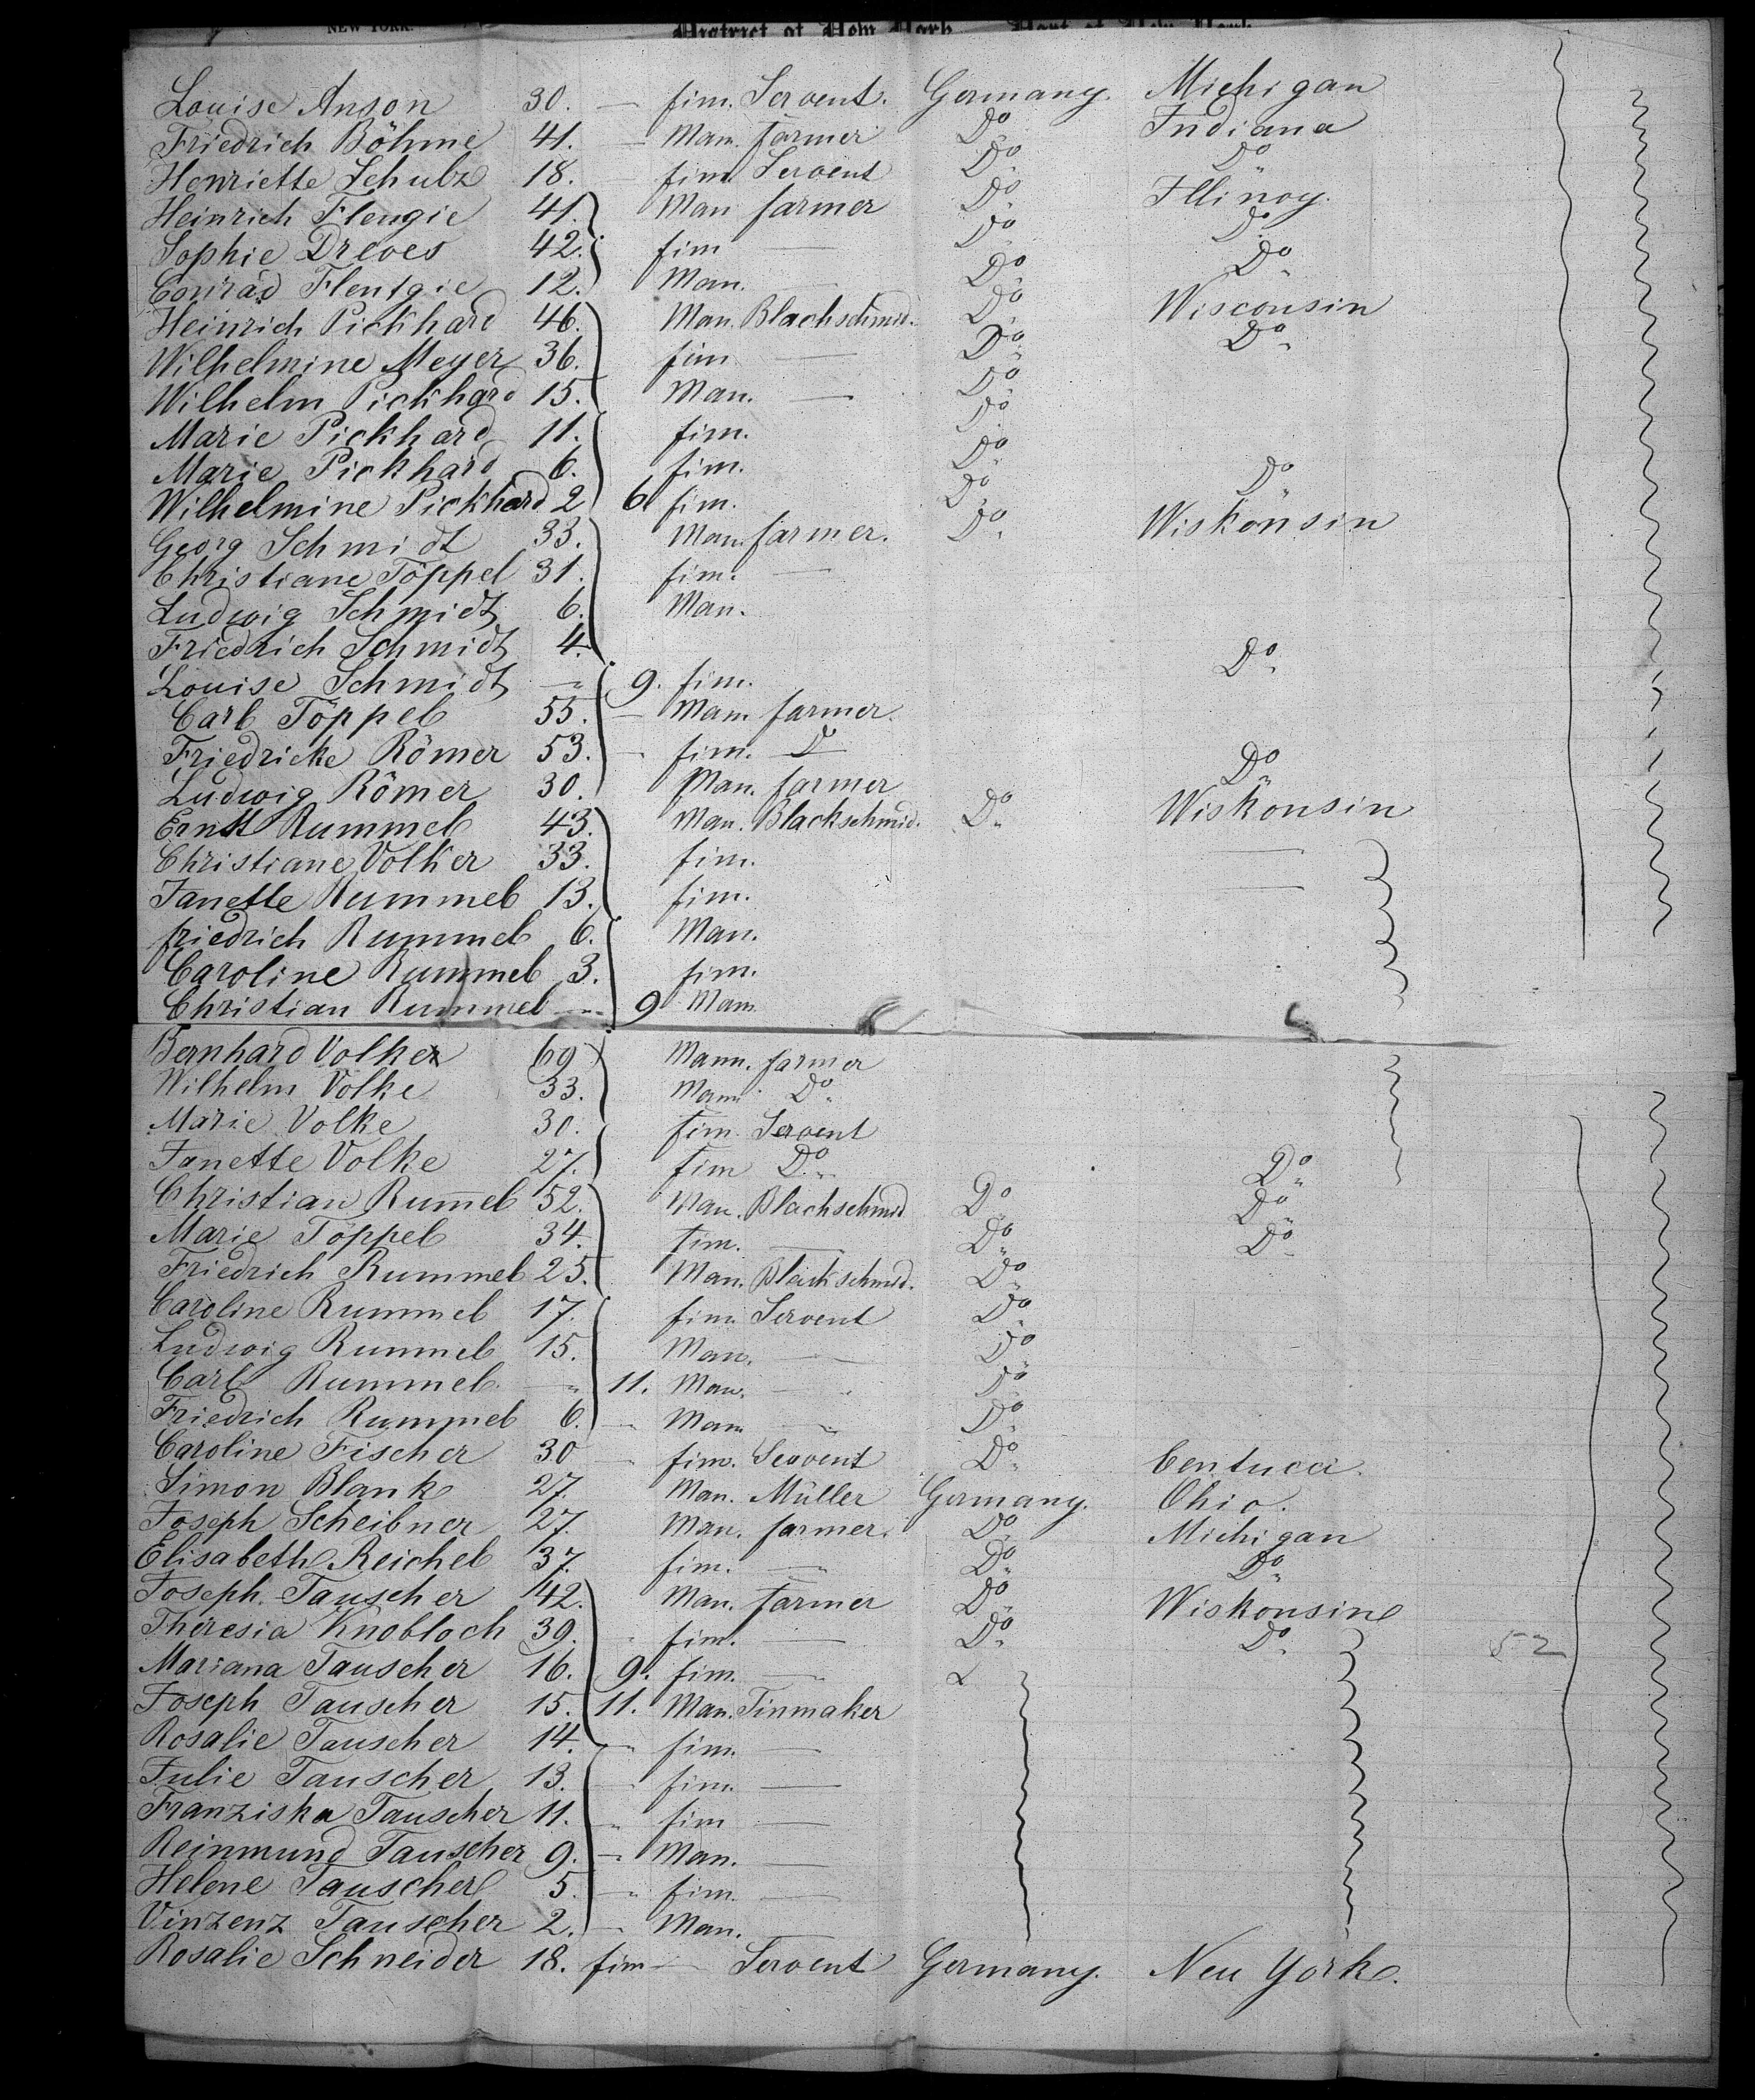 NEW YORK. District of New York Port of New York
Louise Anson 30. — fim. Servent. Germany. Michigan
Friedrich Böhme 41. — Man. farmer Do Indiana
Henriette Schulz 18. fim. Servent Do. Do
Heinrich Flengie 41. Man farmer Do. Illinoy.
Sophie Dreves 42. fim — Do. Do.
Conrad Flentgie 12. Man. — Do. Do.
Heinrich Pickhard 46. Man. Blachschmid. Do. Wisconsin
Wilhelmine Meyer 36. fim — Do. Do.
Wilhelm Pickhard 15. Man. — Do.
Marie Pickhard 11. fim. Do
Marie Pickhard 6. fim. Do
Wilhelmine Pickhard 2 6 fim. Do. Do
Georg Schmidt 33. Man. farmer. Do. Wiskonsin
Christiane Töppel 31. fim. —
Ludwig Schmidt 6. Man.
Friedrich Schmidt 4.
Louise Schmidt — 9. fim. Do.
Carl Töppel 55. — Mam farmer.
Friedricke Römer 53. fim. D
Ludwig Römer 30. Man. farmer Do
Ernst Rummel 43. Man. Blackschmid. Do. Wiskonsin
Christiane Volker 33. fim. —
Janette Rummel 13. fim. —
friedrich Rummel 6. Man.
Caroline Rummel 3. fim.
Christian Rummel — 9 Mam
Bernhard Volker 69 Mann. farmer
Wilhelm Volke 33. Mann Do.
Marie Volke 30. fim. Servent
Janette Volke 27. fim Do. Do.
Christian Rum̄el 52. Man. Blachschmid Do Do.
Marie Töppel 34. fim. — Do. Do
Friedrich Rummel 25. Man. Blackschmid. Do.
Caroline Rummel 17. fim. Servent Do.
Ludwig Rummel 15. Man. — Do
Carl Rummel. — 11. Man. — Do
Friedrich Rummel 6. — Mam — Do.
Caroline Fischer 30 fim. Servent Do. Centucci.
Simon Blank 27. Man. Müller Germany. Ohio.
Joseph Scheibner 27. Man. farmer. Do. Michigan
Elisabeth Reichel 37. fim. — Do. Do.
Joseph. Tauscher 42. Man. farmer Do. Wiskonsin
Theresia Knobloch 39. fim. — Do. Do. 52
Mariana Tauscher 16. 9. fim. —
Joseph Tauscher 15. 11. Man. Tinmaker
Rosalie Tauscher 14. fim. —
Julie Tauscher 13. fim. —
Franziska Tauscher 11. fim —
Reinmund Tauscher 9. — Man. —
Helene Tauscher 5. fim. —
Vinzenz Tauscher 2. — Man.
Rosalie Schneider 18. fim — Servent Germany. Neu York.